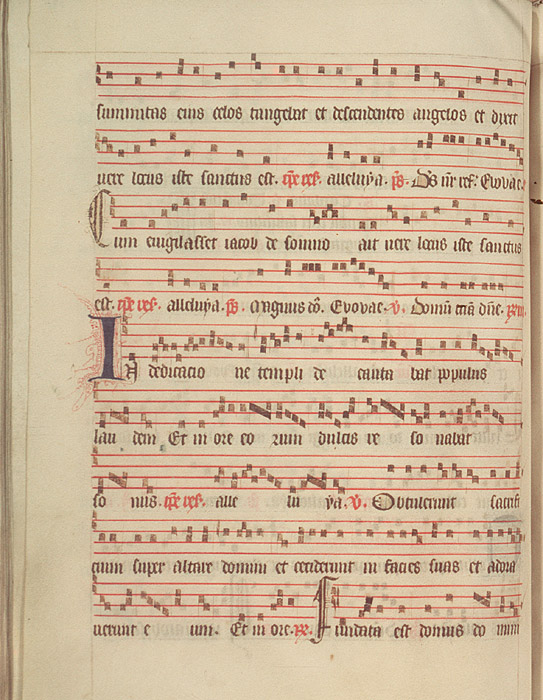 summitas eius celos tangebat et descendentes angelos et dixit
uere locus iste sanctus est. tpe res. alleluya. ps. Ds nr ref. Evovae.
Cum euigilasset iacob de sompno ait uere locus iste sanctus
est. tpe res. alleluya. ps. Magnus do. Evovae. v. Domu tua dne.
In dedicacio ne templi de canta bat populus
lau dem Et in ore eo rum dulcis re so nabat
so nus. tpe res. alle lu ya. v. Obtulerunt sacrifi
cium super altare domini et ceciderunt in facies suas et adora
uerunt e um. Et in ore. Fundata est domus do mini